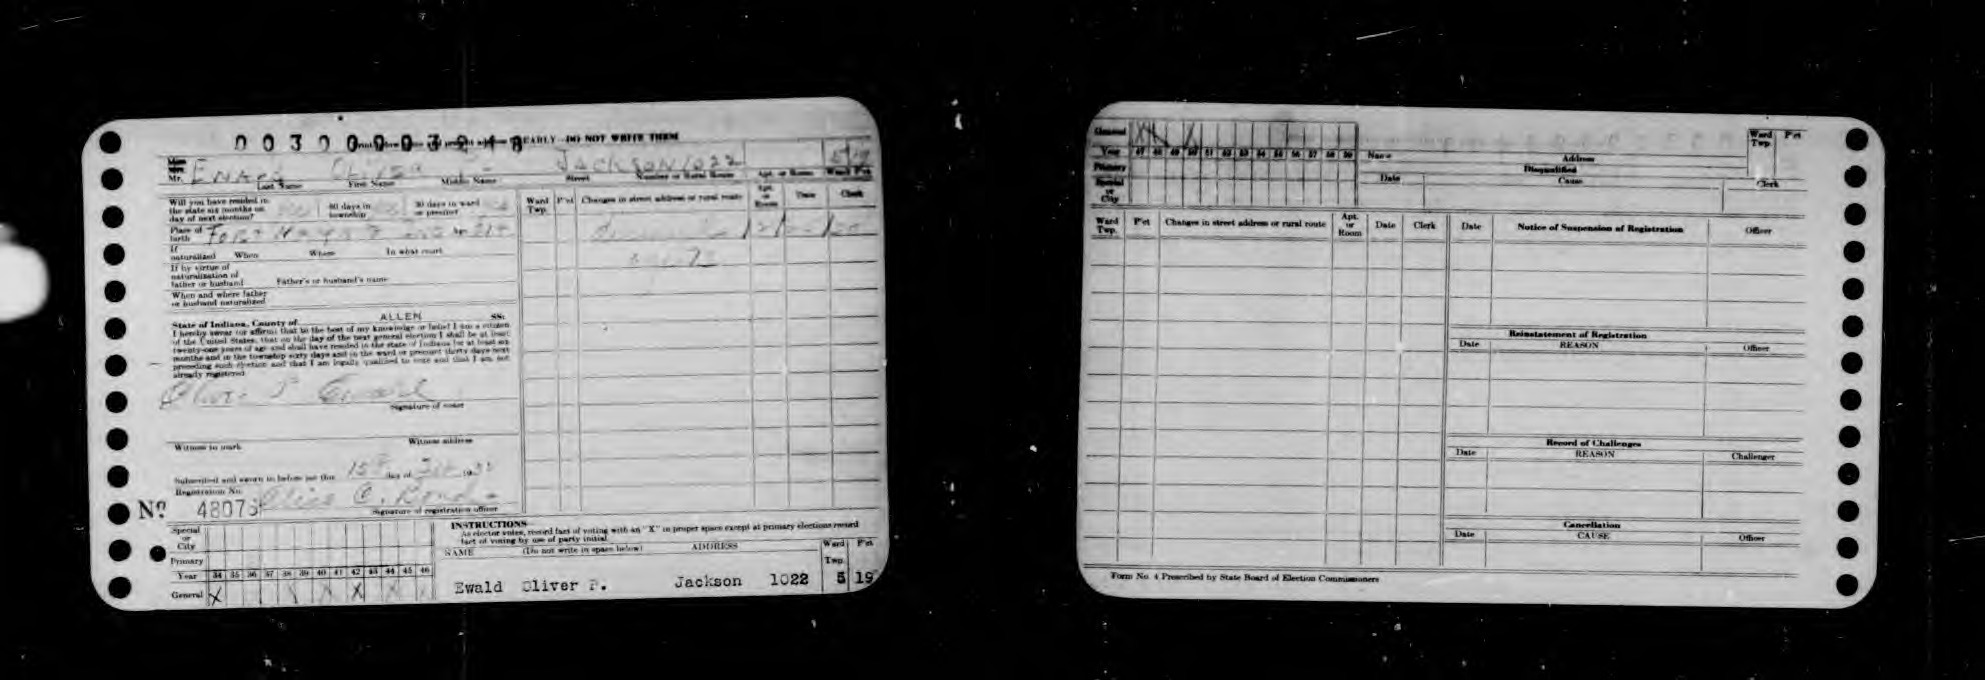 EARLY—DO NOT WRITE THEM
Mr. EWALD OLIVER JACKSON 1022 5 19
Last Name First Name Middle Name Street Number or Rural Route Apt. or Room Ward Pct
Will you have resided in
the state six months on 60 days in township 30 days in ward or precinct
day of next election?
Place of birth FORT WAYNE IND Age 21+
If naturalized When Where In what court
If by virtue of
naturalization of
father or husband Father's or husband's name
When and where father
or husband naturalized
State of Indiana, County of ALLEN SS:
I hereby swear (or affirm) that to the best of my knowledge or belief I am a citizen
of the United States, that on the day of the next general election I shall be at least
twenty-one years of age and shall have resided in the state of Indiana for at least six
months and in the township sixty days and in the ward or precinct thirty days next
preceding such election and that I am legally qualified to vote and that I am not
already registered.
Oliver P Ewald
Signature of voter
Witness to mark Witness address
Subscribed and sworn to before me this 15th day of
Registration No.
No 48073
Signature of registration officer
Ward Twp. P'ct Changes in street address or rural route Apt. or Room Date Clerk
Special or City
Primary
Year 34 35 36 37 38 39 40 41 42 43 44 45 46
General X X X X X
INSTRUCTIONS
As elector votes, record fact of voting with an "X" in proper space except at primary elections record
fact of voting by use of party initial.
NAME (Do not write in space below) ADDRESS Ward Twp. P'ct
Ewald Oliver P. Jackson 1022 5 19
General X X
Year 47 48 49 50 51 52 53 54 55 56 57 58 59
Primary
Special or City
Name Address Ward Twp. P'ct
Disqualified
Date Cause Clerk
Ward Twp. P'ct Changes in street address or rural route Apt. or Room Date Clerk
Date Notice of Suspension of Registration Officer
Reinstatement of Registration
Date REASON Officer
Record of Challenges
Date REASON Challenger
Cancellation
Date CAUSE Officer
Form No. 4 Prescribed by State Board of Election Commissioners